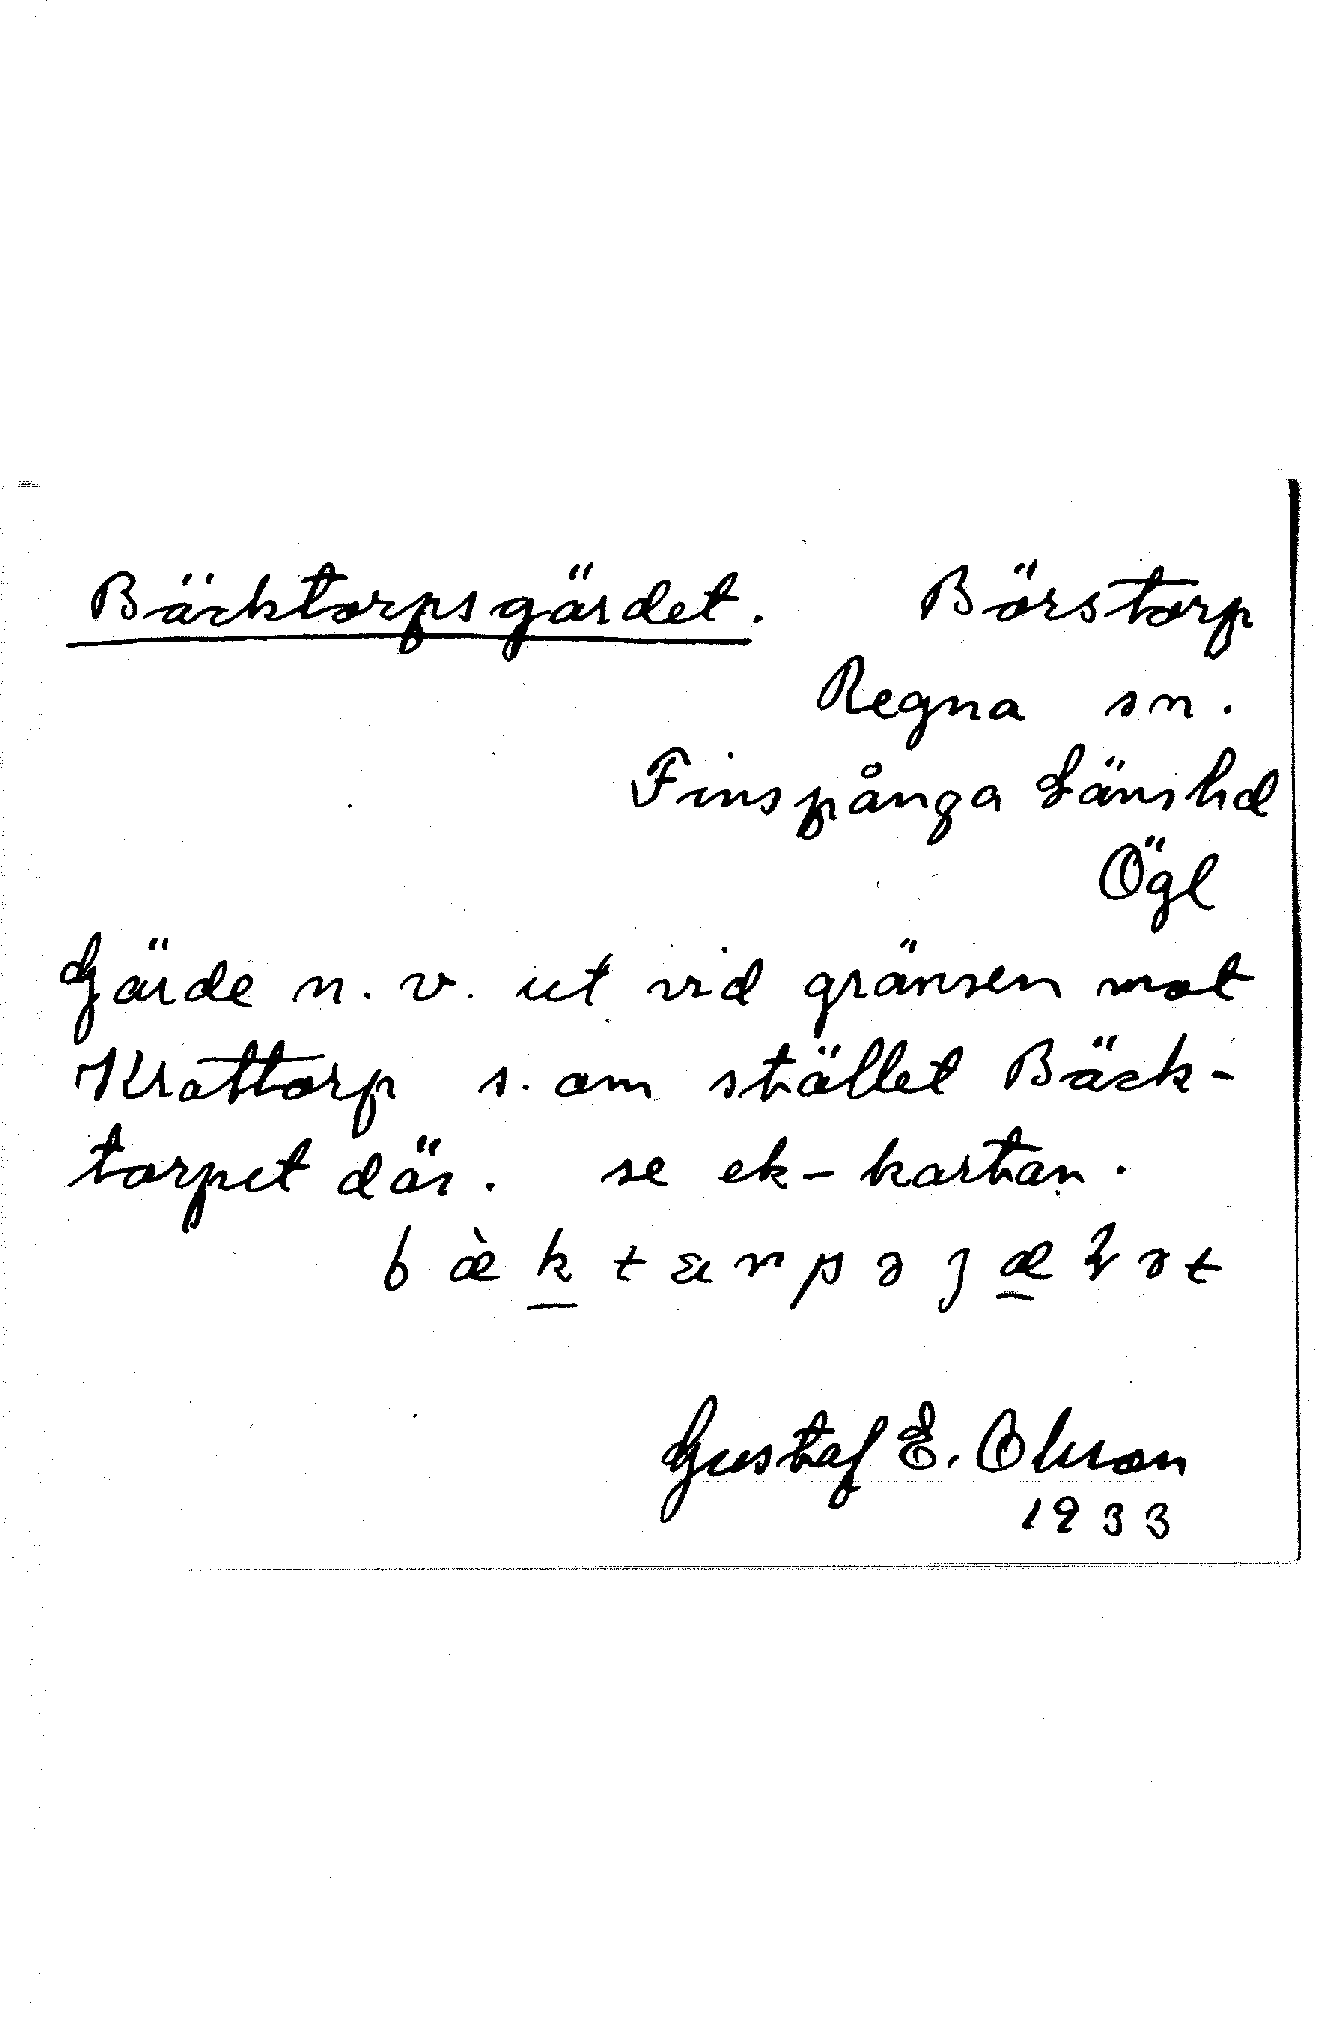 Bäcktorpsgärdet. Börstorp
Regna sn.
Finspånga Länshd
Ögl
Gärde n. v. ut vid gränsen mot
Krattorp s. om stället Bäck-
torpet där. se ek-kartan.
Gustaf E. Olsson
1933